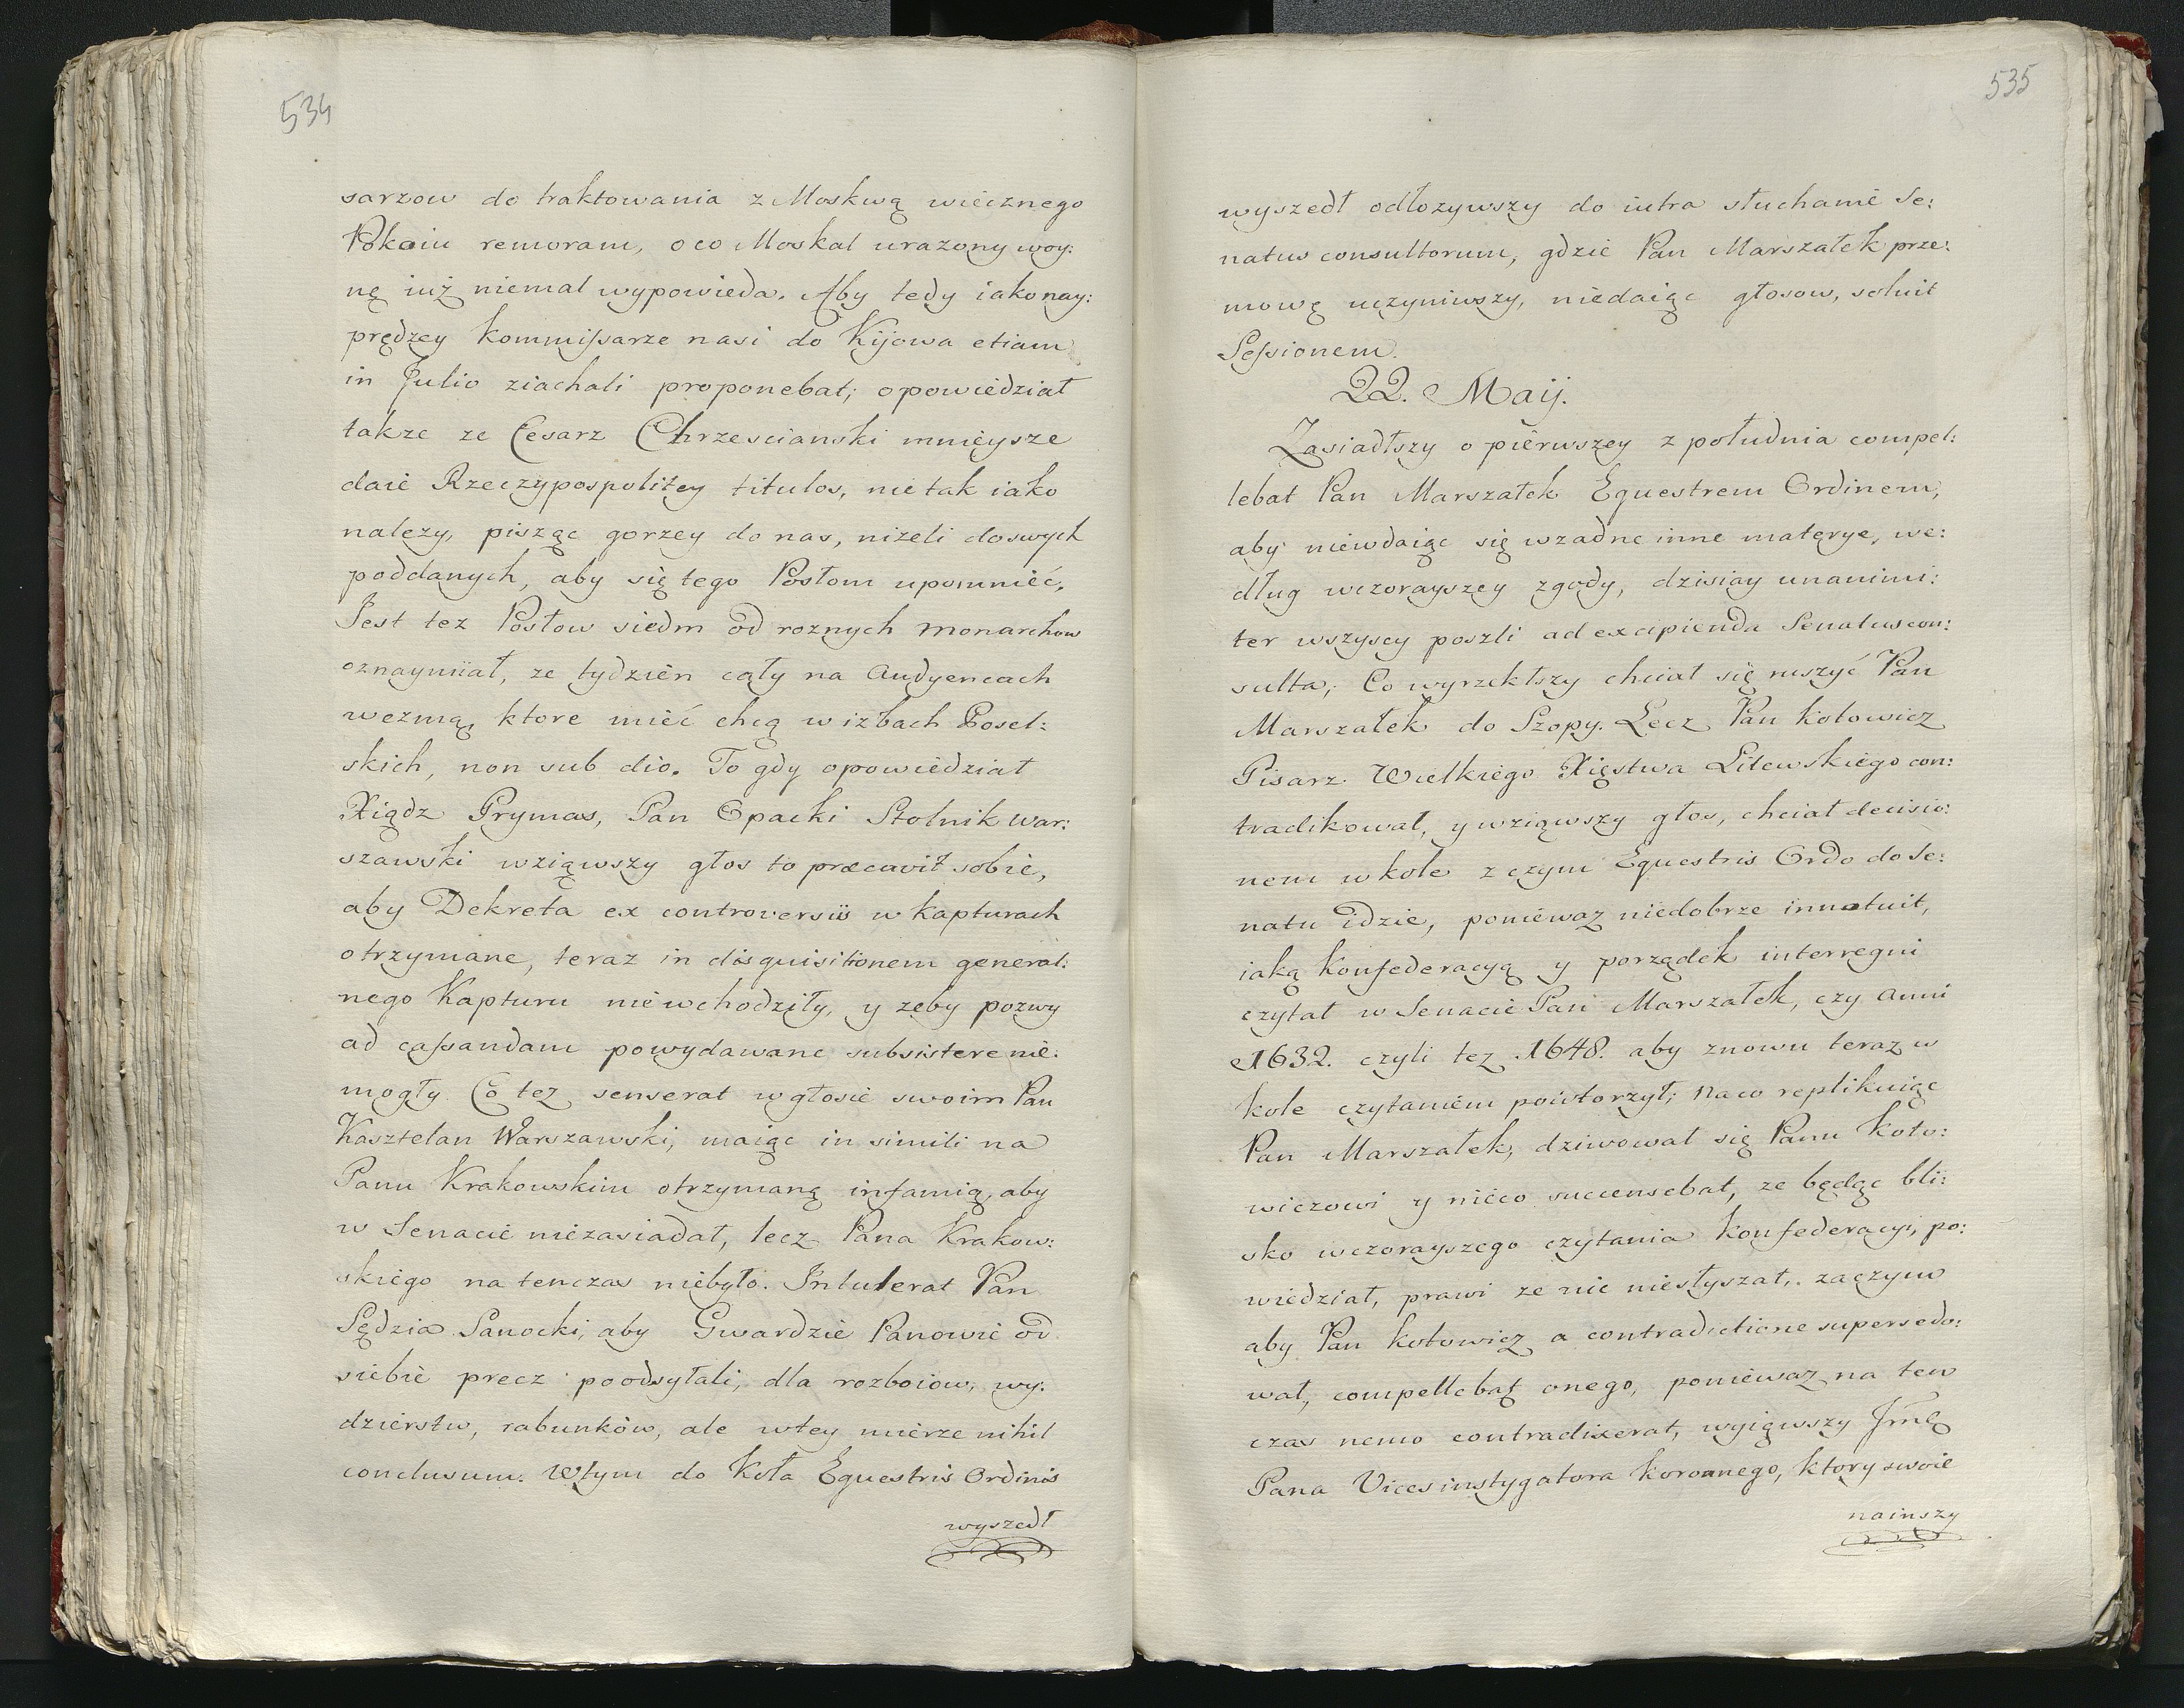 534
sarzow do traktowania z Moskwą wiecznego
Pokoiu remoram, oco Moskal urazony woy:
nę iuż niemal wypowieda. Aby tedy iakonay:
prędzey kommissarze nasi do Kijowa etiam
in Julio ziachali proponebat; opowiedział
takze ze Cesarz Chrzescianski mnieysze
daie Rzeczypospolitey titulos, nie tak iako
nalezy, pisząc gorzey do nas, nizeli doswych
poddanych, aby się tego Posłom upomnieć,
Jest tez Posłow siedm od roznych monarchow
oznaymiał, ze tydzien cały na Audyencach
wezmą, ktore mieć chcą w izbach Posel:
skich, non sub dio. To gdy opowiedział
Xiądz Prymas, Pan Opacki Stolnik war:
szawski wziąwszy głos to præcavit sobie,
aby Dekreta ex controversiis w kapturach
otrzymane, teraz in disquisitionem general:
nego Kapturu niewchodziły, y zeby pozwy
ad cassandam powydawane subsistere nie:
mogły. Co tez senserat w głosie swoim Pan
Kasztelan Warszawski, maiąc in simili na
Panu Krakowskim otrzymaną infamią, aby
w Senacie niezasiadał, lecz Pana Krakow:
skiego na tenczas niebyło. Intulerat Pan
Sędzia Sanocki, aby Gwardzie Panowie od
siebie precz poodsyłali, dla rozboiow, wy:
dzierstw, rabunków, ale wtey mierze nihil
conclusum. Wtym do Koła Equestris Ordinis
wyszedł
535
wyszedł odłozywszy do iutra słuchanie Se:
natus consultorum, gdzie Pan Marszałek prze:
mowę uczyniwszy, niedaiąc głosow, solvit
Sessionem.
22. Maij.
Zasiadłszy o pierwszey z południa compel:
lebat Pan Marszałek Equestrem Ordinem,
aby niewdaiąc się wzadne inne materye, we:
dług wczorayszey zgody, dzisiay unanimi:
ter wszyscy poszli ad excipienda Senatus con:
sulta; Co wyrzekłszy chciał się ruszyć Pan
Marszałek do Szopy. Lecz Pan Kotowicz
Pisarz Wielkiego Xięstwa Litewskiego con:
tradikował, y wziąwszy głos, chciał decisio:
nem w kole z czym Equestris Ordo do Se:
natu idzie, poniewaz niedobrze innotuit,
iaką Konfederacyą y porządek interregni
czytał w Senacie Pan Marszałek, czy Anni
1632. czyli tez 1648. aby znowu teraz w
kole czytaniem powtorzył; Naco replikuiąc
Pan Marszałek, dziwował się Panu Koto:
wiczowi y nieco succensebat, ze będąc bli:
sko wczorayszego czytania Konfederacyi, po:
wiedział, prawi ze nic niesłyszał, zaczym
aby Pan Kotowicz a contradictione supersedo:
wał, compellebat onego, poniewaz na ten
czas nemo contradixerat, wyiąwszy Jmę
Pana Vicesinstygatora koronnego, ktory swoie
nainszy